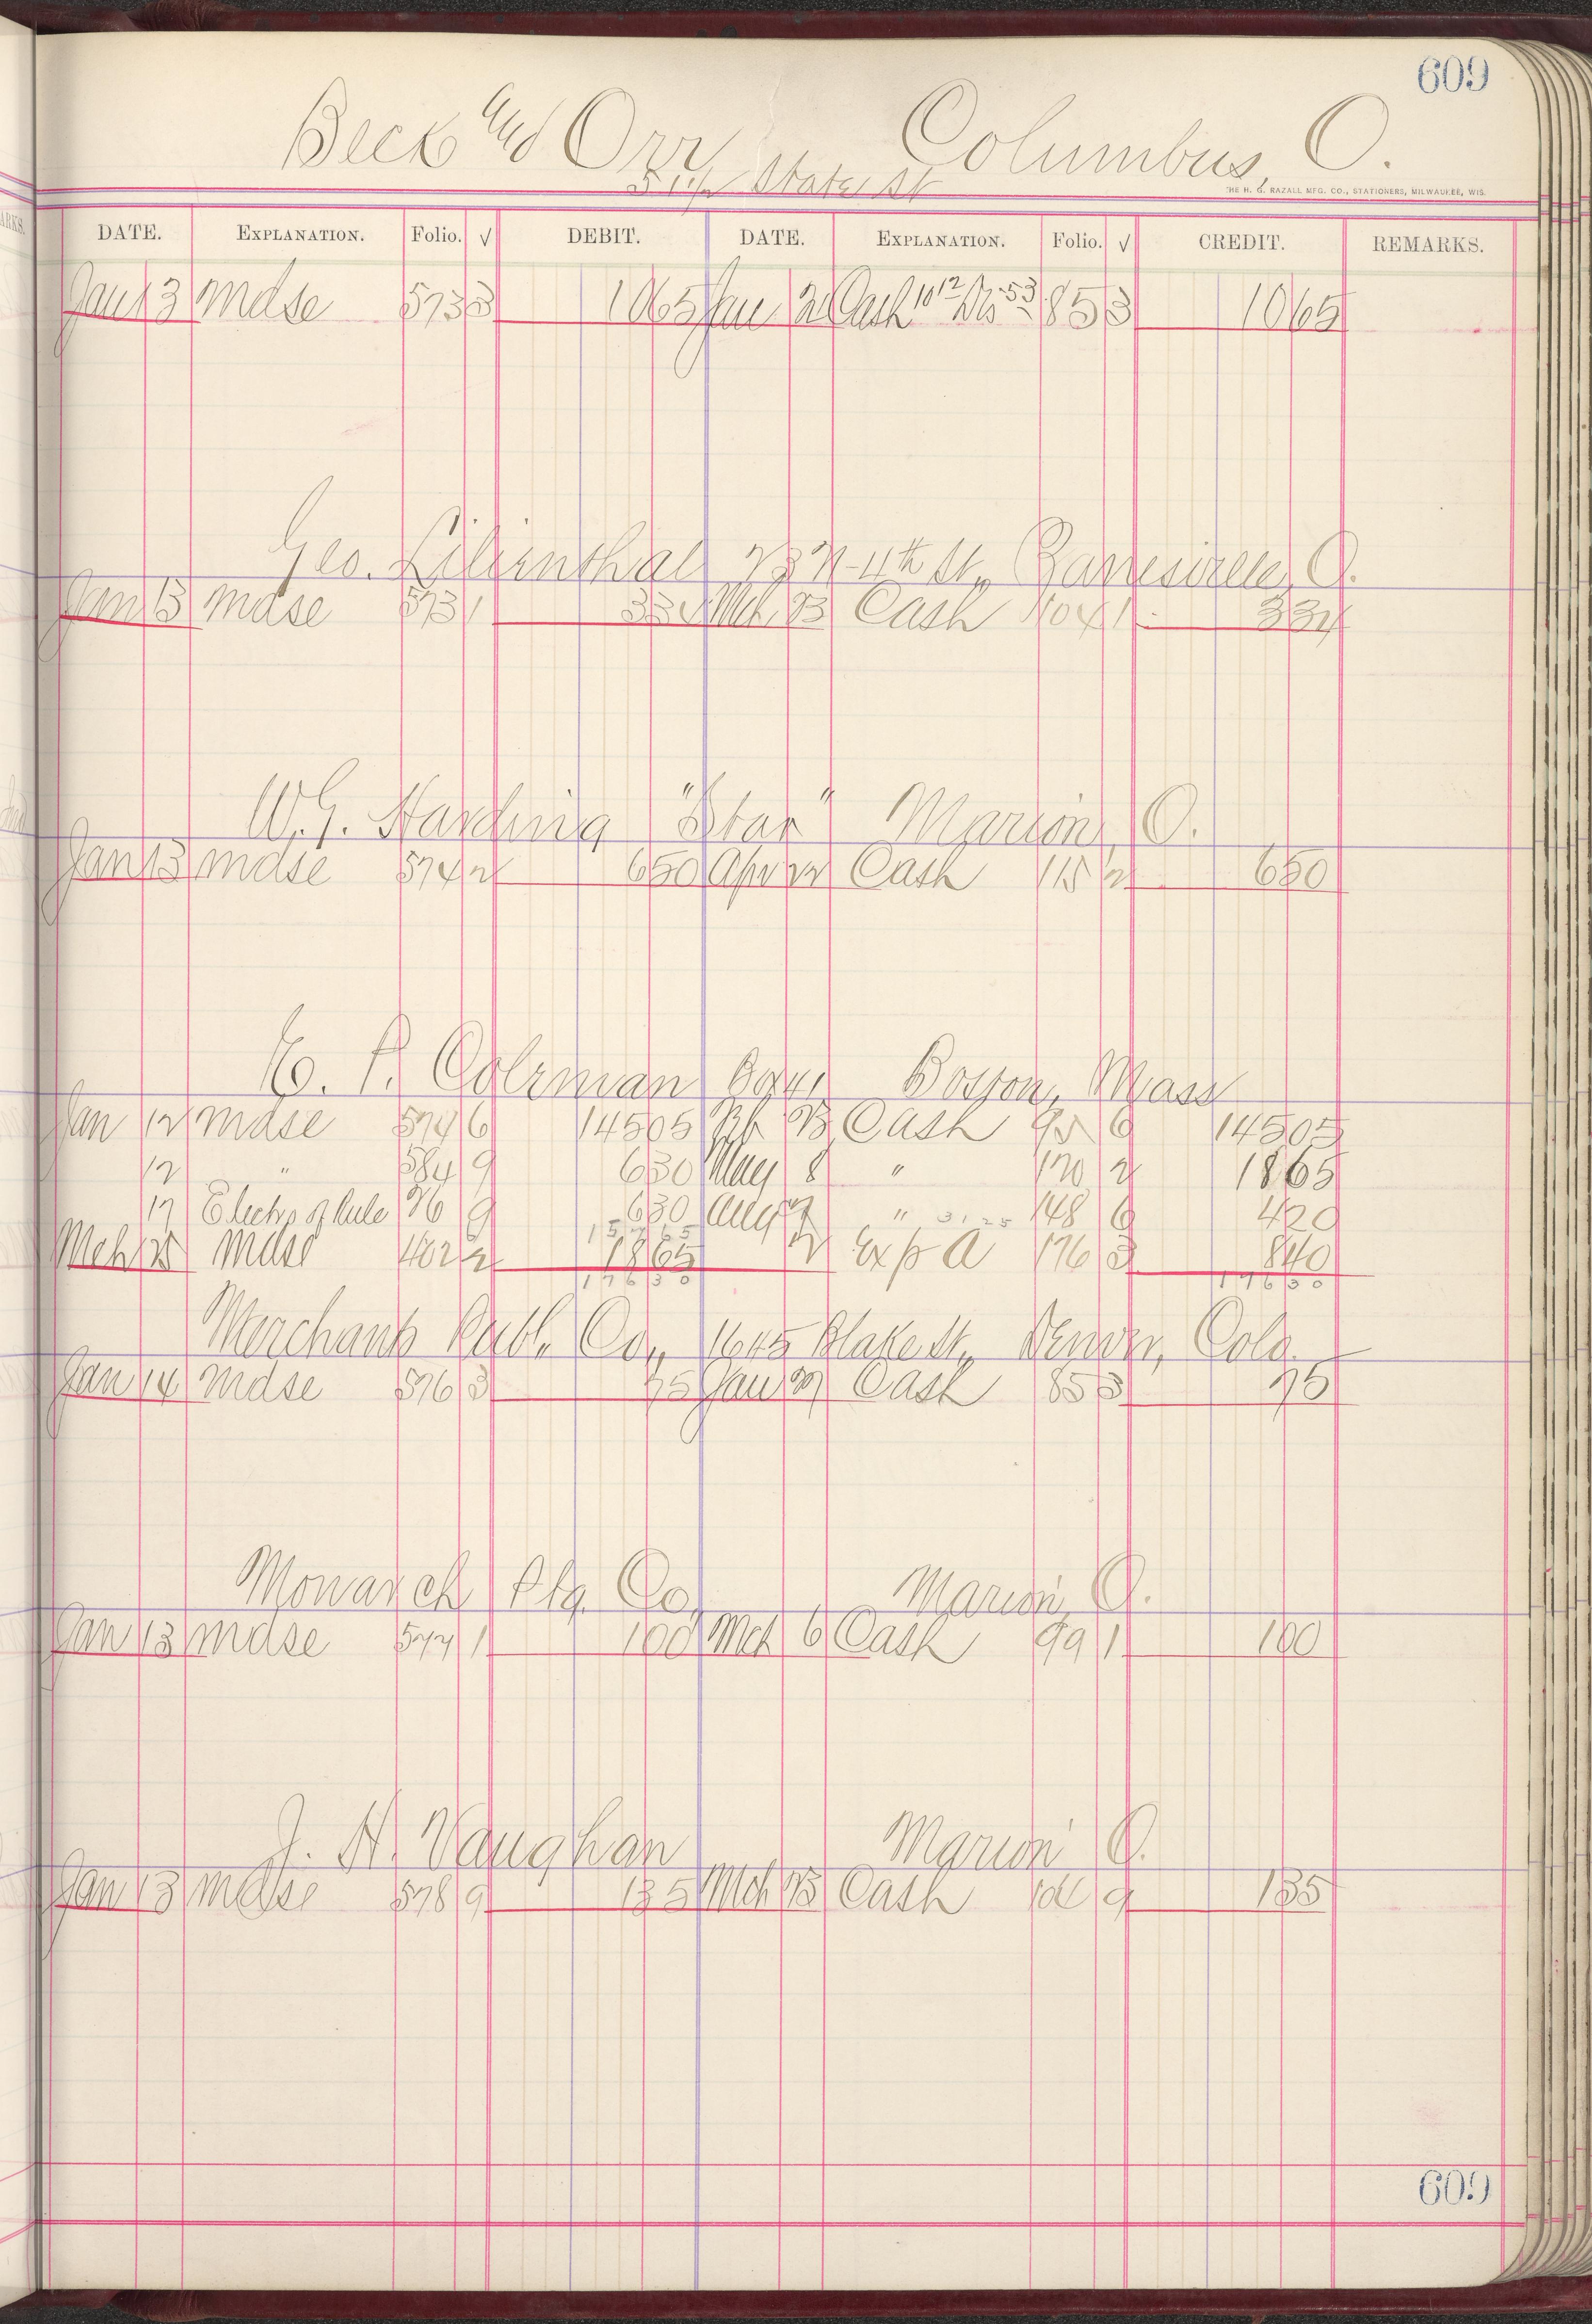 609
Beck and Orr Columbus, O.
State St
THE H. G. RAZALL MFG. CO., STATIONERS, MILWAUKEE, WIS.
DATE. EXPLANATION. Folio. √ DEBIT. DATE. EXPLANATION. Folio. √ CREDIT. REMARKS.
Jan 13 Mdse 573 3 1065 Jan Cash 10 12 Dis 53 85 3 1065
Geo. Lilienthal N 4th St, Zanesville, O.
Jan 13 Mdse 573 1 334 Mch 13 Cash 104 1 334
W. G. Harding "Star" Marion, O.
Jan 13 Mdse 574 2 650 Apr Cash 115 2 650
Colman Boston, Mass
Jan 12 Mdse 574 6 14505 Feb Cash 14505
12 " 584 9 630 May 8 " 1865
17 Electro & Rule 76 9 630 Aug " 31 25 148 6 420
Mch Mdse 402 2 1865 Exp A 176 3 840
17630 17630
Merchants Publ. Co., 1645 Blake St, Denver, Colo
Jan 14 Mdse 576 3 75 Jan Cash 85 3 75
Monarch Ptg. Co, Marion, O.
Jan 13 Mdse 577 1 100 Mch 6 Cash 99 1 100
J. H. Vaughan Marion O.
Jan 13 Mdse 578 9 135 Mch 13 Cash 9 135
609